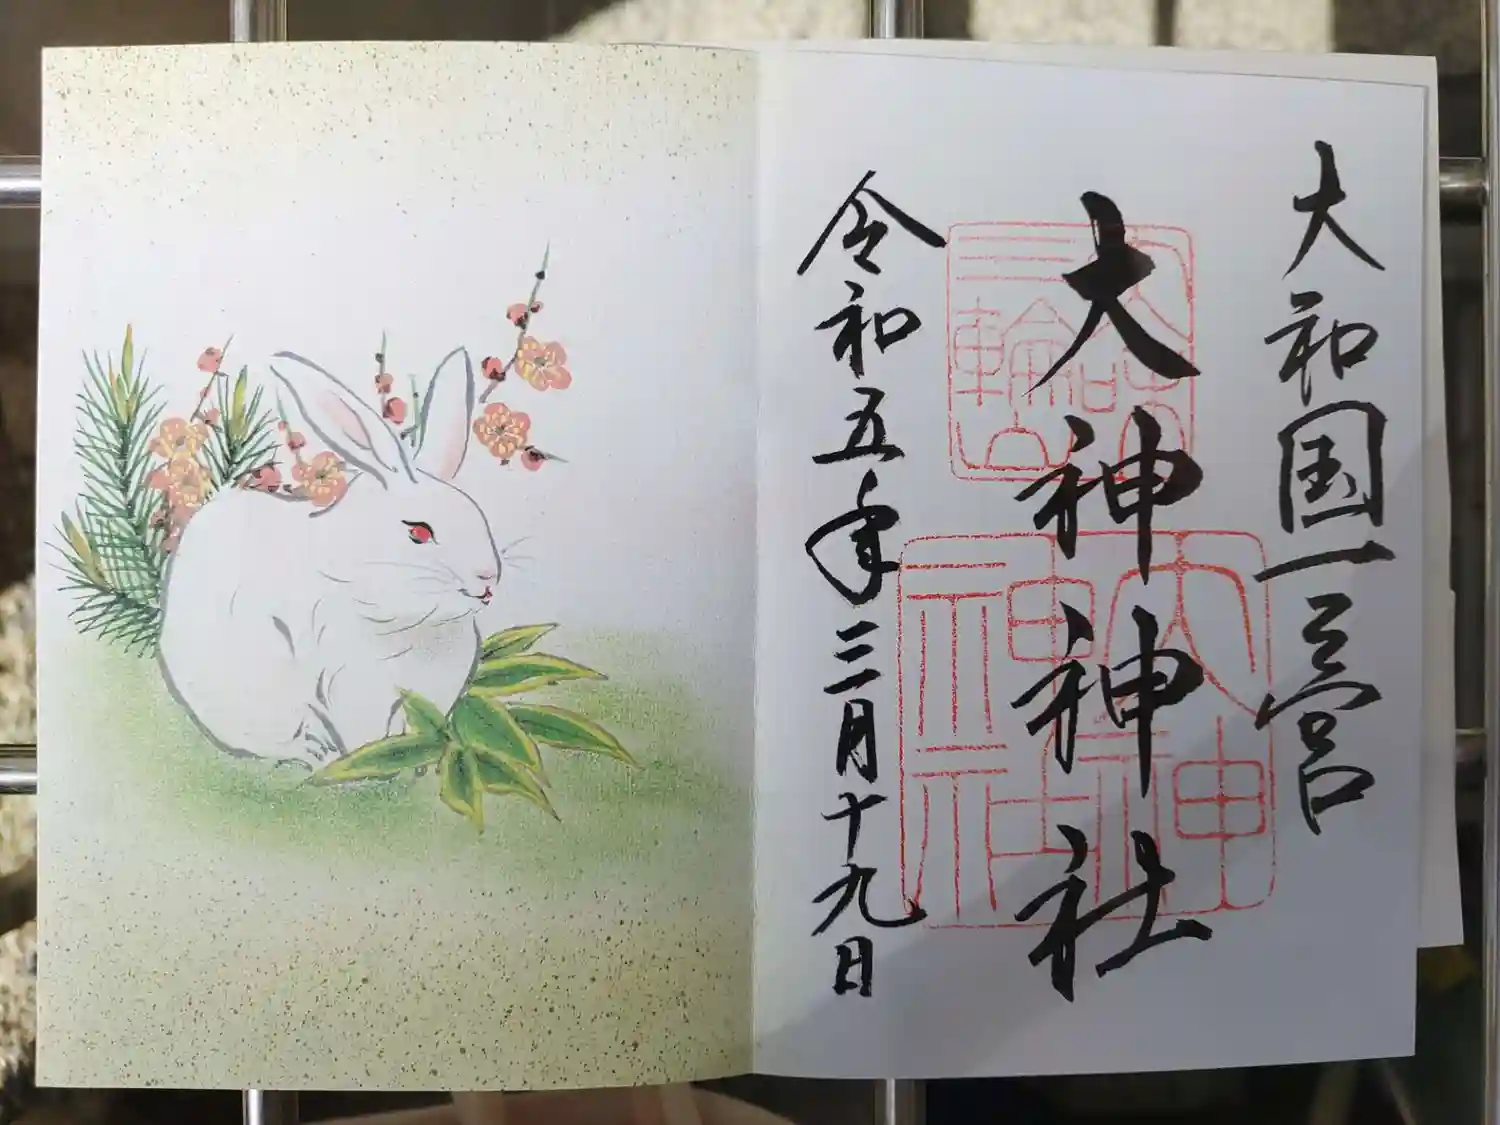 大和国一之宮
大神神社
令和五年三月十九日
大神神社